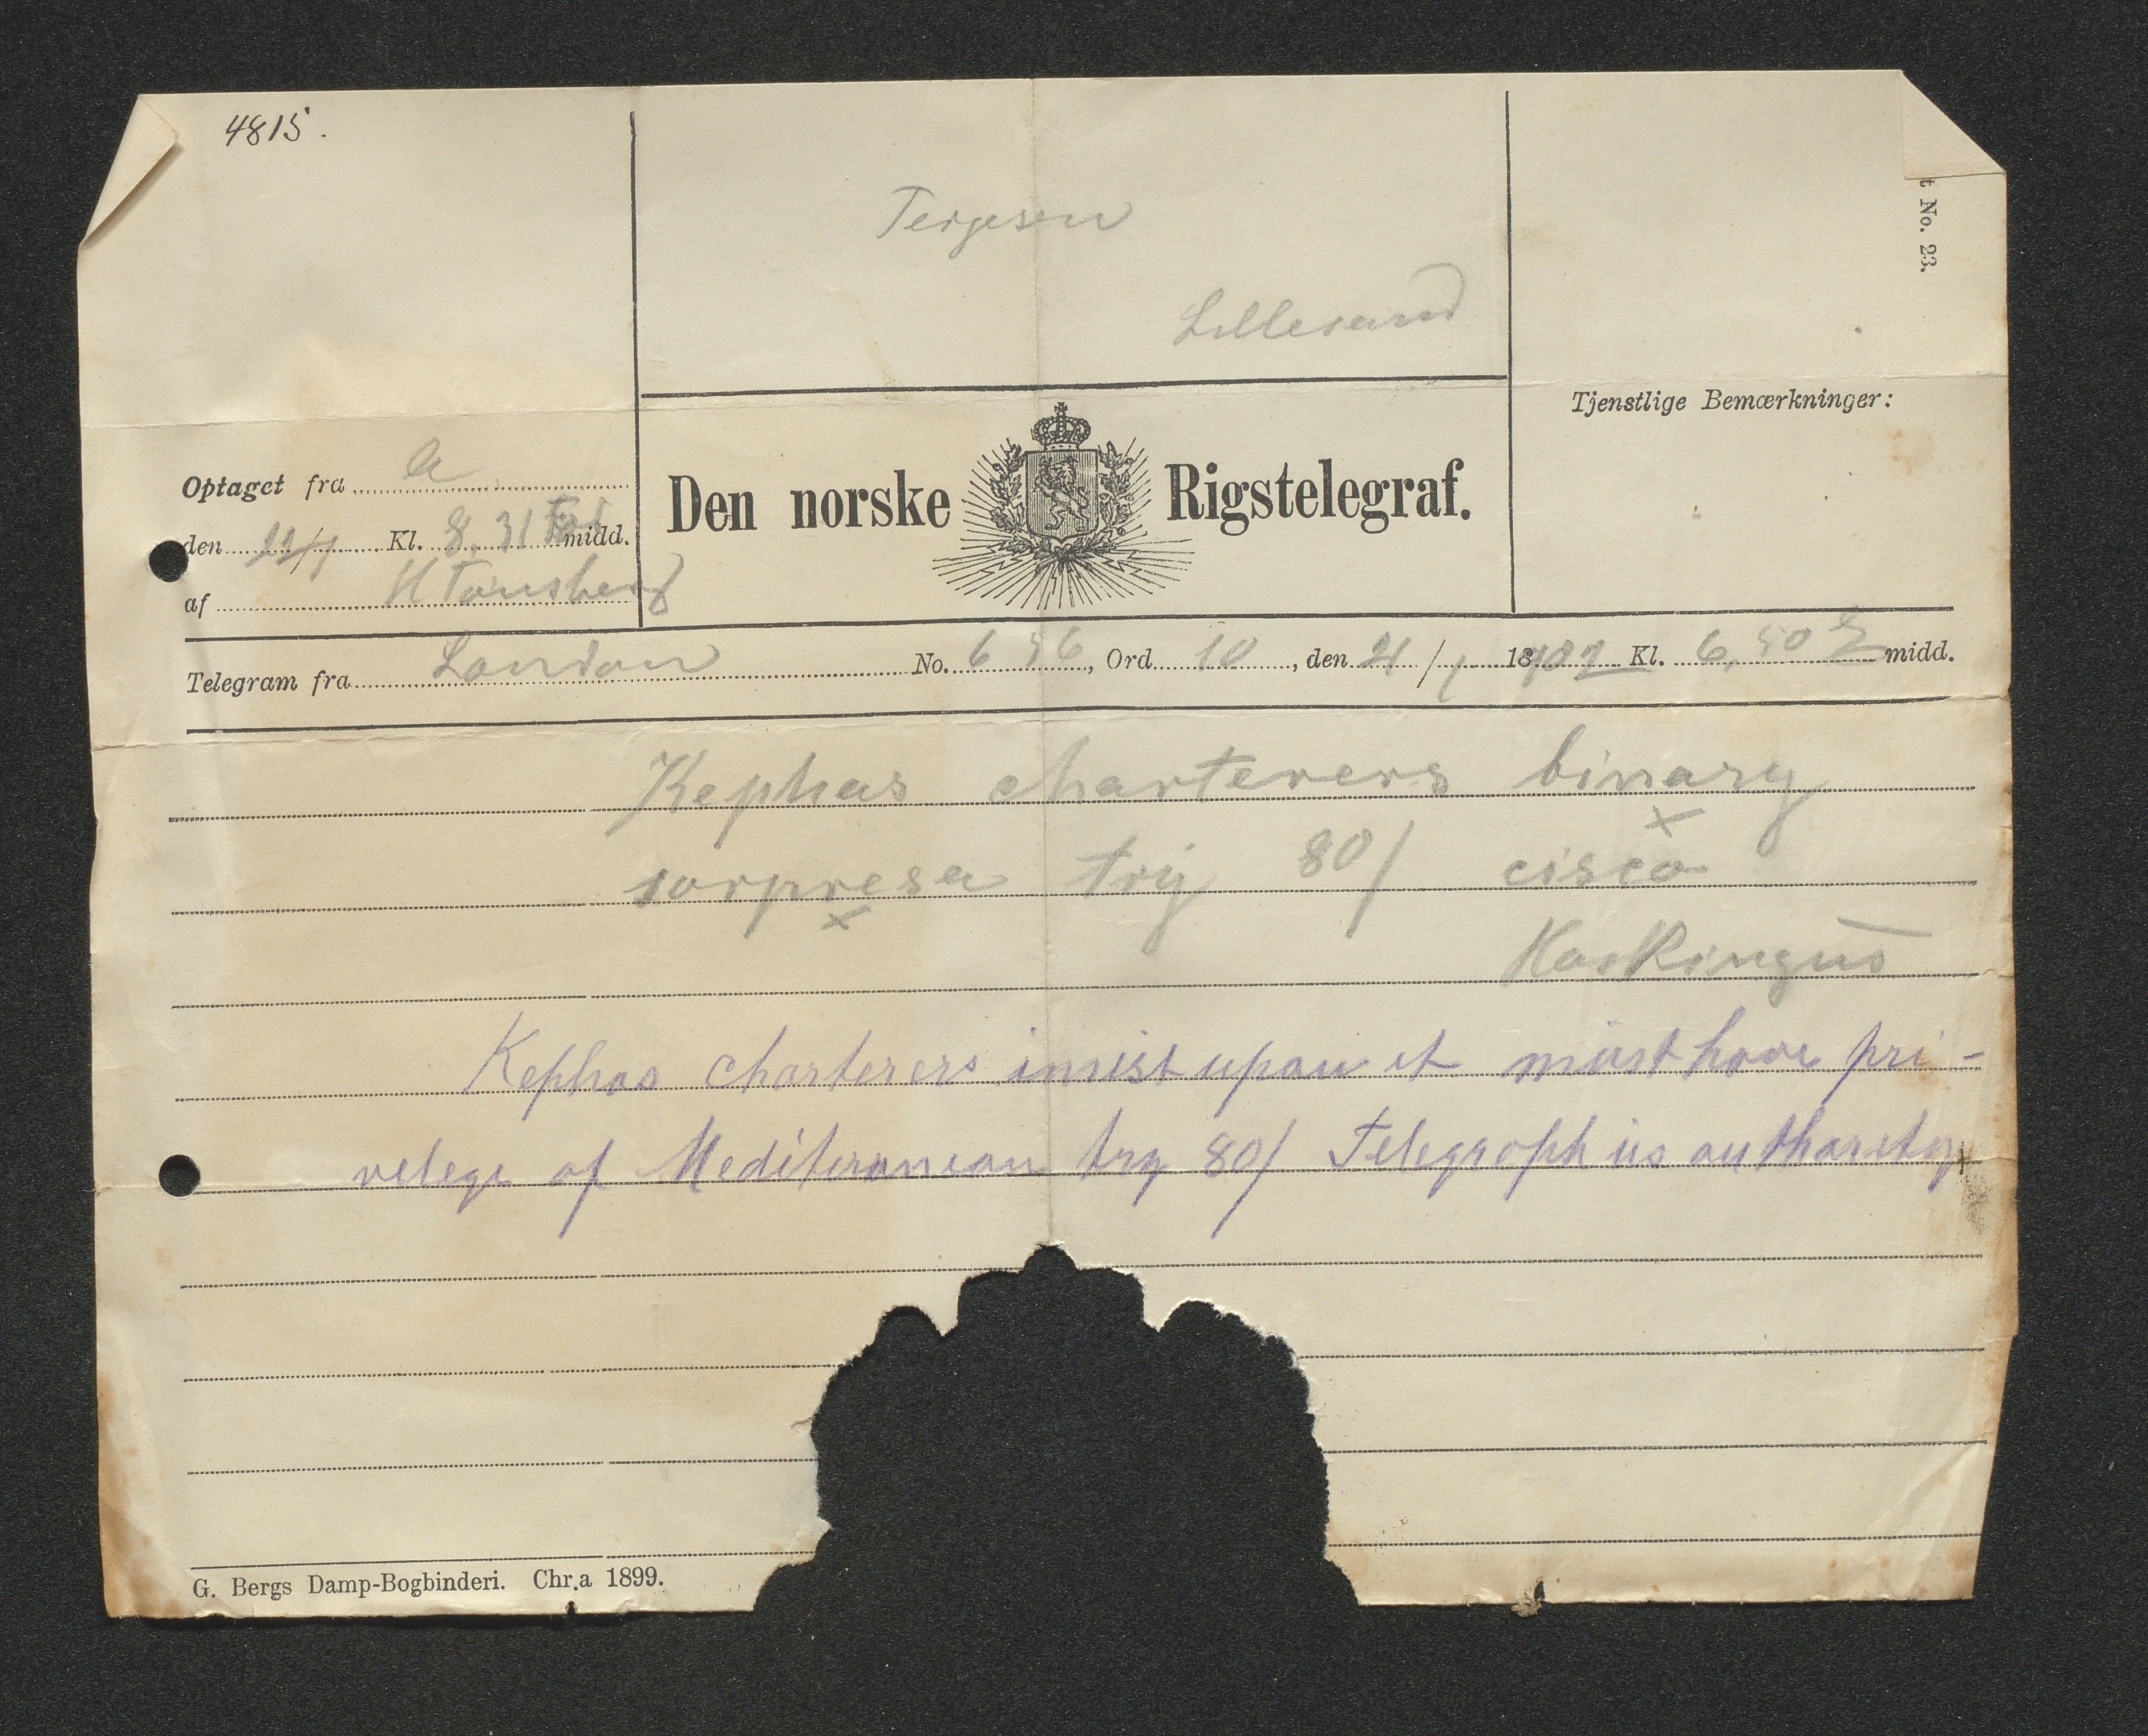 4815.
Tergesen
Lillesand
t No. 23.
Tjenstlige Bemærkninger:
Optaget fra a
den 22/1 Kl. 8.31 midd.
af H Tønsberg
Den norske Rigstelegraf.
Telegram fra London No. 656, Ord 10, den 21/1 1902 Kl. 6,50 E midd.
Kephas charterers binary
x
sorpresa try 80/ cisco
x
Kephas charterers insist upon it must have pri-
velege of Mediteranean try 80/ Telegraph us authorety
G. Bergs Damp-Bogbinderi. Chr.a 1899.